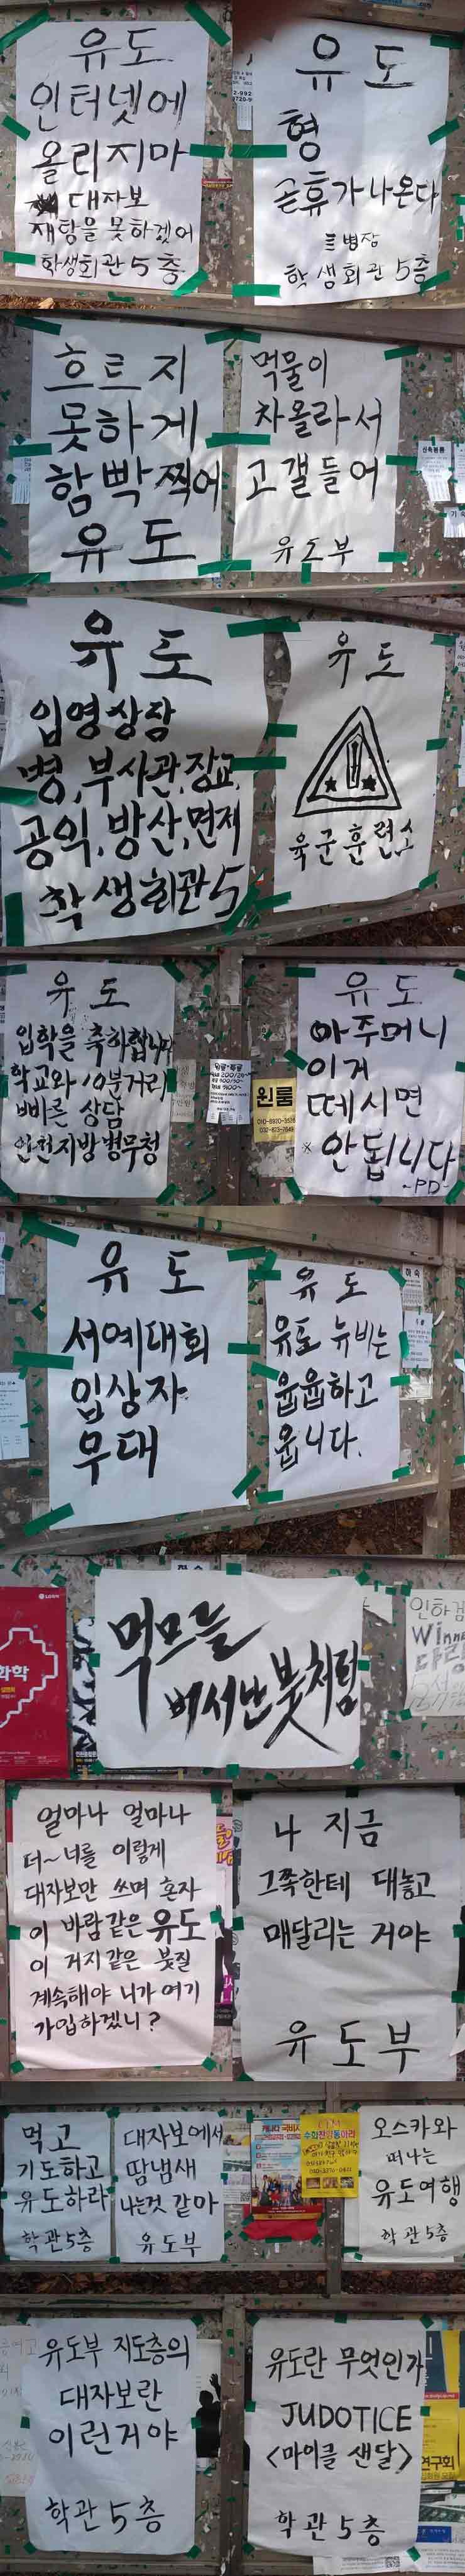 유도
인터넷에
올리지마
대자보
재탕을 못하겠어
학생회관 5층
유도
형
곧휴가나온다
병장
학생회관 5층
흐트지
못하게
함빡찍어
유도
먹물이
차올라서
고갤들어
유도부
유도
입영상담
병, 부사관, 장교,
공익, 방산, 면제
학생회관 5
유도
육군훈련소
유도
입학을 축하합니다
학교와 10분거리
빠른 상담
인천지방병무청
원룸
유도
아주머니
이거
떼시면
※ 안됩니다
-PD-
유도
서예대회
입상자
우대
유도
유도 뉴비는
웁웁하고
웁니다.
하숙
먹므를
벼서난 붓처럼
화학
얼마나 얼마나
더~너를 이렇게
대자보만 쓰며 혼자
이 바람같은 유도
이 거지같은 붓질
계속해야 니가 여기
가입하겠니?
나 지금
그쪽한테 대놓고
매달리는 거야
유도부
먹고
기도하고
유도하라
학관5층
대자보에서
땀냄새
나는것 같아
유도부
오스카와
떠나는
유도여행
학관5층
유도부 지도층의
대자보란
이런거야
학관 5층
유도란 무엇인가
JUDOTICE
<마이클 샌달>
학관 5층
연구회